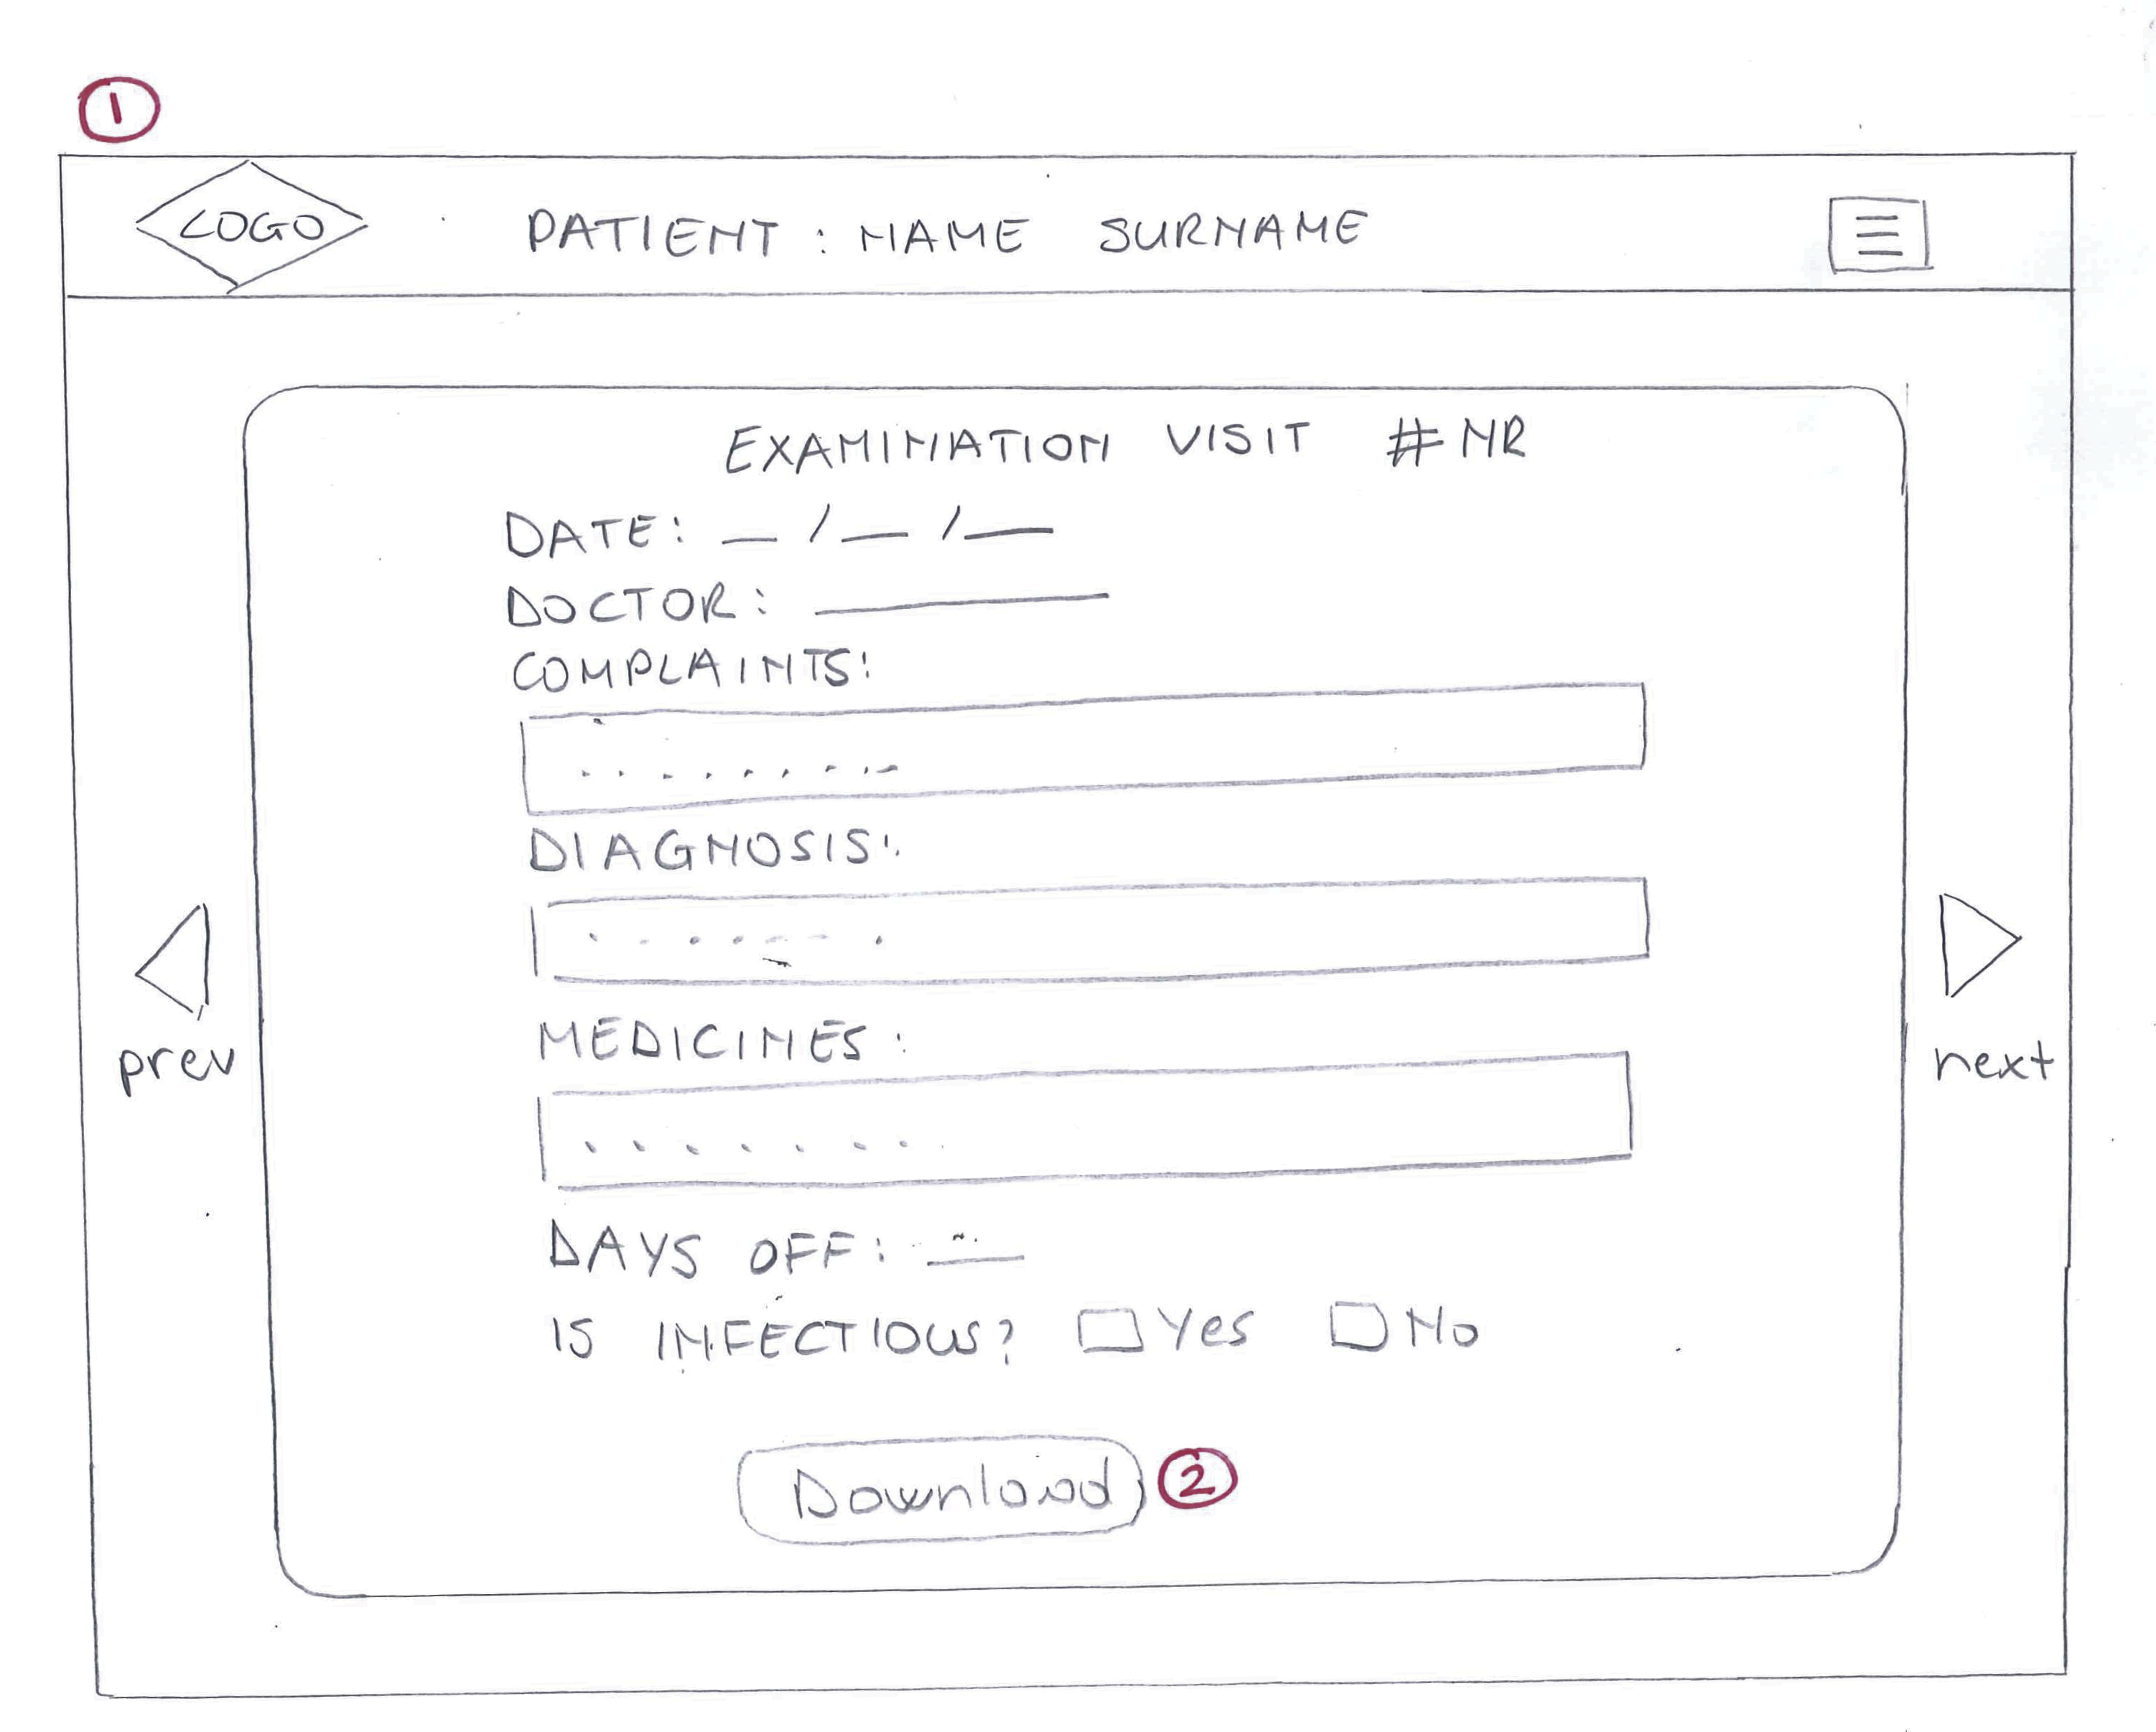 1
LOGO PATIENT : NAME SURNAME
EXAMINATION VISIT #NR
DATE: _ / _ / _
DOCTOR: ____
COMPLAINTS:
.........
DIAGNOSIS:
.......
MEDICINES:
.......
DAYS OFF: __
IS INFECTIOUS? Yes No
prev
next
Download 2